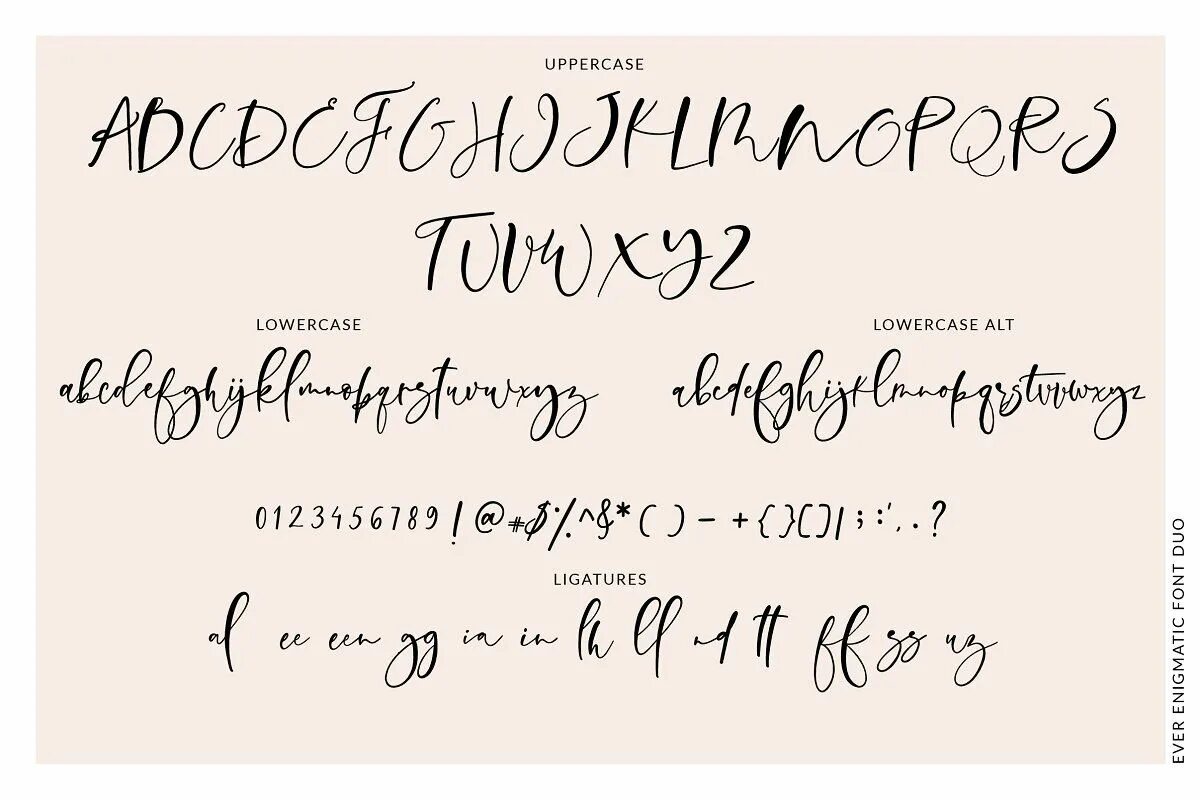 UPPERCASE
ABCDEFGHIJKLMNOPQRS
TUVWXYZ
LOWERCASE
abcdefghijklmnopqrstuvwxyz
LOWERCASE ALT
abcdefghijklmnopqrstuvwxyz
0123456789!@#$%^&*()-+{}[]|;:',.?
LIGATURES
al ee een gg ia in lh ll nd tt ff ss uz
EVER ENIGMATIC FONT DUO